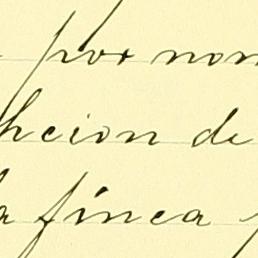 por nom
hcion de
la finca